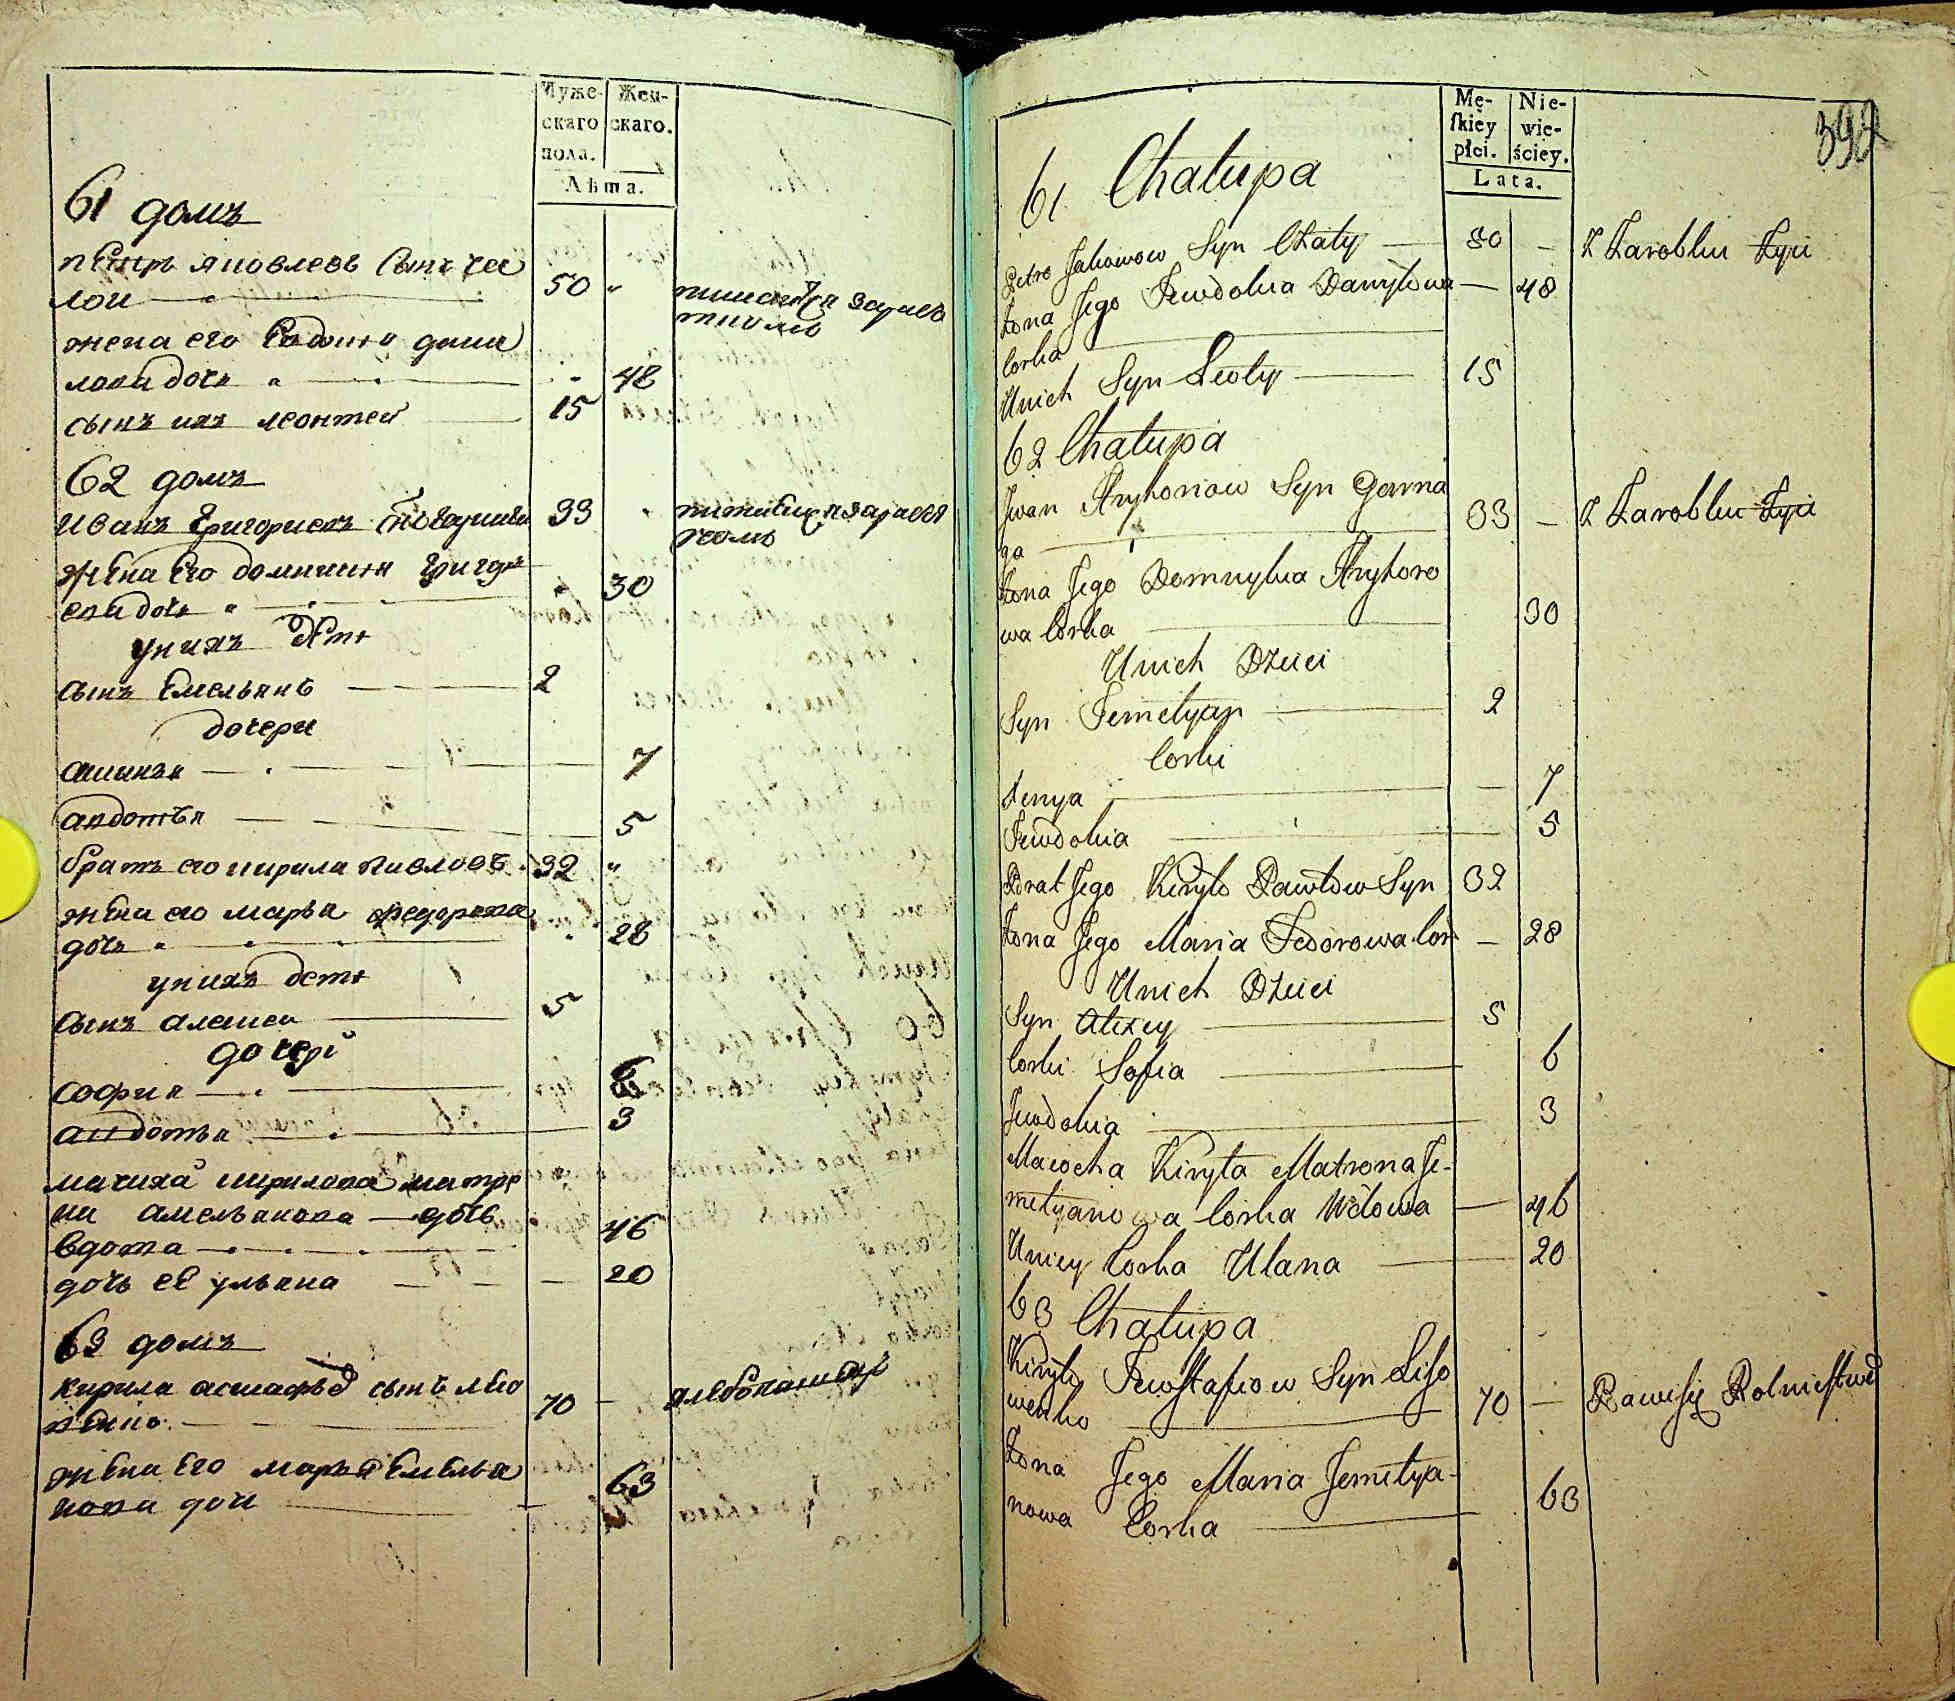 Муже-
скаго
пола.
Жен-
скаго.
Лѣта.
61 домъ
петръ яковлевъ сынъ чеа
лои 50
жена его Евдокия дани
лова дочь 48
сынъ ихъ леонтей 15
62 домъ
иванъ григориевъ 33
жена его домникия григори
ева дочь 30
у нихъ дети
сынъ Емельянъ 2
дочери
7
авдотья 5
братъ его кирила павловъ 32
жена его марья федорова
дочь 28
у нихъ дети
сынъ алексей 5
дочери
софия 6
авдотья 3
мачиха кирилова матре
на амельянова дочь
вдова 46
дочь её ульяна 20
63 домъ
кирила астафьев сынъ лисо
венко 70 хлебопашец
жена его марья Емелья
нова дочь 63
Mę-
ſkiey
płci.
Nie-
wie-
ściey.
Lata.
392
61 Chałupa
Petro Jakowow Syn Czały 50 Z Zarobku Zyie
Zona Jego Jewdokia Danyłowa 48
Corka
Unich Syn Leoty 15
62 Chałupa
Jwan Hryhoriow Syn Gonna 33 Z Zarobku Zyie
ga
Zona Jego Domnykia Hryhoro
wa Corka 30
Unich Dzieci
Syn Jemelyan 2
Corki
Xenya 7
Jewdokia 5
Brat Jego Kiryło Pawłow Syn 32
Zona Jego Maria Fedorowa Cor 28
Unich Dzieci
Syn Alexey 5
Corki Sofia 6
Jewdokia 3
Macocha Kiryła Matrona Je-
melyanowa Corka Wdowa 46
Uniey Corka Ulana 20
63 Chałupa
Kiryło Jewstafiow Syn Liso
wenko 70 Bawi się Rolnictwem
Zona Jego Maria Jemelya-
nowa Corka 63